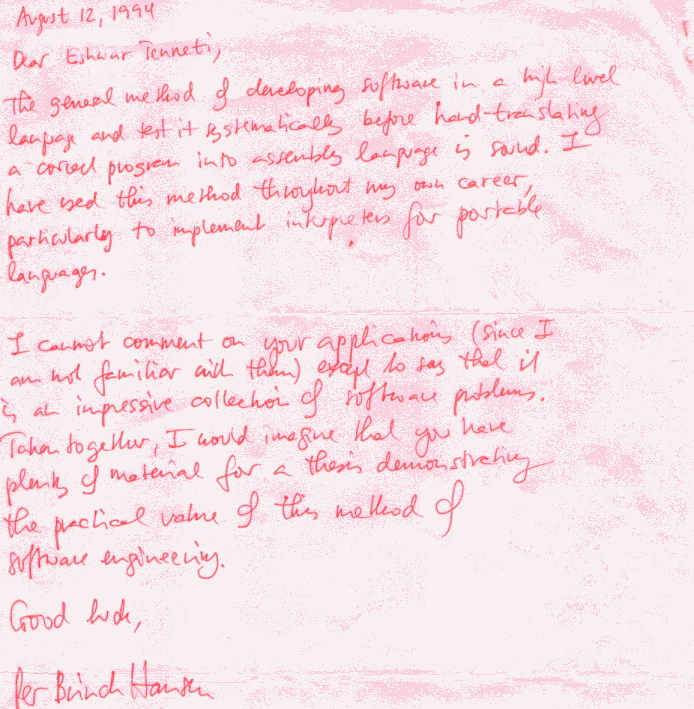 August 12, 1994
Dear Eshwar Tenneti,
The general method of developing software in a high level
language and test it systematically before hand-translating
a correct program into assembly language is sound. I
have used this method throughout my own career,
particularly to implement interpreters for portable
languages.
I cannot comment on your applications (since I
am not familiar with them) except to say that it
is an impressive collection of software problems.
Taken together, I would imagine that you have
plenty of material for a thesis demonstrating
the practical value of this method of
software engineering.
Good luck,
Per Brinch Hansen